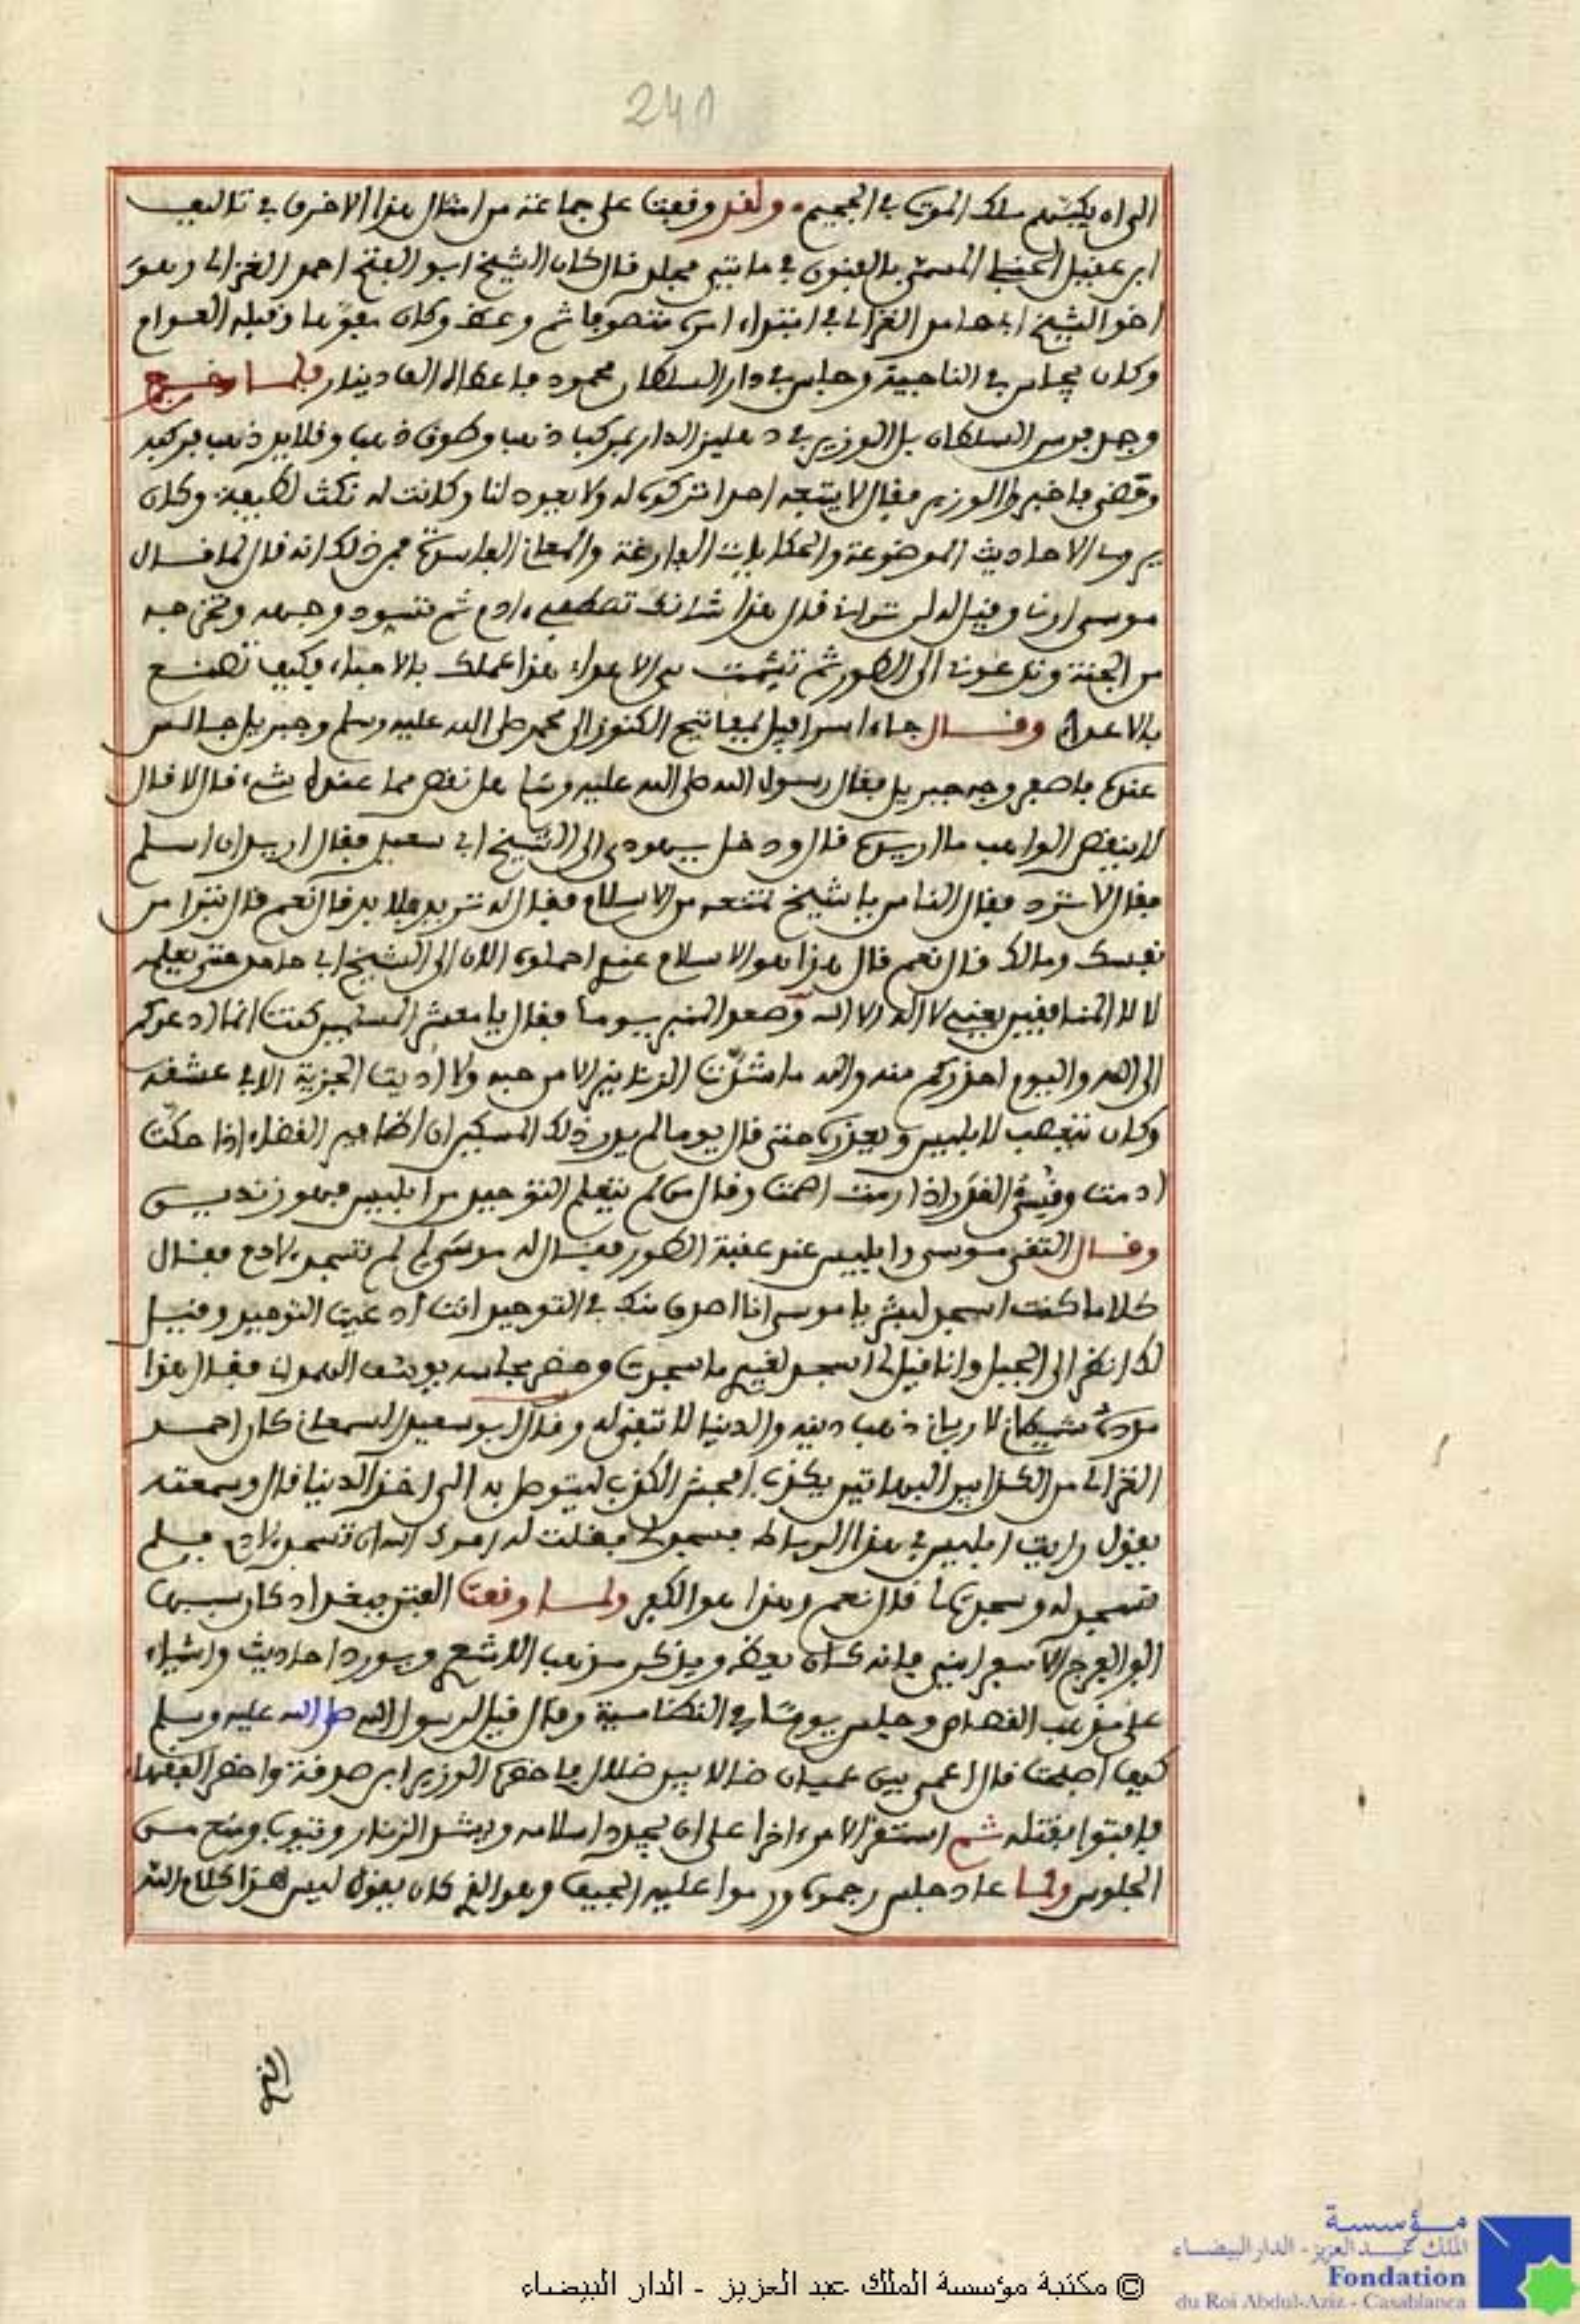 241
الى ان يكبهم ملك الموت في الجحيم ولقد وقعت على جماعة من امثال هذا الاخرق في تاليف
ابن عقيل الحنبلي المسمى بالفنون في مايتي مجلد قال كان الشيخ ابو الفتح احمد الغزالي وهو
اخو الشيخ ابي حامد الغزالي في ابتداء امره متصوفا ثم وعظ وكان مفوها وقبله العوام
وكان يجلس في التاجية وجلس في دار السلطان محمود فاعطاه الف دينار فلما خرج
وجد فرس السلطان بل الوزير في دهليز الدار بمركب ذهب وطوق ذهب وقلايد ذهب فركبه
ومضى فاخبر الوزير فقال لا يتبعه احد اتركوه له ولا يعود لنا وكانت له نكت لطيفة وكان
يروي الاحاديث الموضوعة والحكايات الفارغة والمعاني الفاسدة فمن ذلك انه قال لما قال
موسى ارني وقيل له لن تراني قال هذا شانك تصطفي ادم ثم تسود وجهه وتخرجه
من الجنة وتدعوني الى الطور ثم تشمت بي الاعداء هذا عملك بالاحباء فكيف تصنع
بالاعداء وقال جاء اسرافيل بمفاتيح الكنوز الى محمد صلى الله عليه وسلم وجبريل جالس
عنده فاصفر وجه جبريل فقال رسول الله صلى الله عليه وسلم هل نقص مما عنده شيء قال لا قال
لا ينقص الواهب ما اريده قال ودخل يهودي الى الشيخ ابي سعيد فقال اريد ان اسلم
فقال لا ترد فقال الناس يا شيخ تمنعه من الاسلام فقال له تريد فلا بد قال نعم قال تبرا من
نفسك ومالك قال نعم قال هذا هو الاسلام عندي احملوه الان الى الشيخ ابي حامد حتى يعلمه
لا لا المنافقين يعني لا اله الا الله وصعد المنبر يوما فقال يا معشر المسلمين كنت انما ادعوكم
الى الله واليوم احذركم منه والله ما شدت الزنانير الا من حبه ولا اديت الجزية الا في عشقه
وكان يتعصب لابليس ويعذره حتى قال يوما لم يدر ذلك المسكين ان اظافير القضاء اذا حكت
ادمت وقسي القدر اذا رمت اصمت وقال من لم يتعلم التوحيد من ابليس فهو زنديق
وقال التقى موسى وابليس عند عقبة الطور فقال له موسى لم لم تسجد لادم فقال
كلا ما كنت اسجد لبشر يا موسى انا اصدق منك في التوحيد انت ادعيت التوحيد وقيل
لك انظر الى الجبل وانا قيل لي اسجد لغيري ما سجدت وحضر مجلسه يوسف الهمداني فقال هذا
مدده شيطاني لا رباني ذهب دينه والدنيا لا تبقى له وقال ابو سعيد السمعاني كان احمد
الغزالي من الكذابين البهاتين يكذب افحش الكذب ليتوصل به الى اخذ الدنيا قال وسمعته
يقول رايت ابليس في هذا الرباط فسجد لي فقلت له امرك الله ان تسجد لادم فلم
تسجد له وسجدت لنا قال نعم وهذا هو الكفر ولما وقعت الفتن ببغداد كان سببها
ابو الفرج الاسفرايني فانه كان يعظ ويذكر مذهب الاشعري ويورد احاديث واشياء
على مذهب القصاص وجلس يوما في النظامية وقال قيل لرسول الله صلى الله عليه وسلم
كيف اصبحت قال اعمى بين عميان ضالا بين ضلال فاحضره الوزير ابن صدقة واحضر الفقهاء
فافتوا بقتله ثم استقر الامر اخرا على ان يجدد اسلامه ويشد الزنار ويتوب ومنع من
الجلوس ولما عاد جلس رجموه ورموا عليه الجيف وهو الذي كان يقول ليس هذا كلام الله
© مكتبة مؤسسة الملك عبد العزيز - الدار البيضاء
مؤسسة
الملك عبد العزيز - الدار البيضاء
Fondation
du Roi Abdul-Aziz - Casablanca